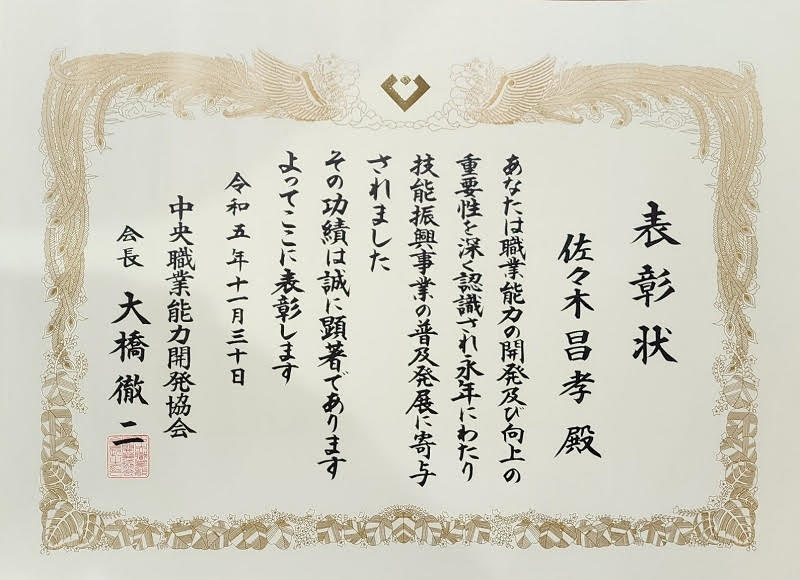 表彰状
佐々木昌孝 殿
あなたは職業能力の開発及び向上の
重要性を深く認識され永年にわたり
技能振興事業の普及発展に寄与
されました
その功績は誠に顕著であります
よってここに表彰します
令和五年十一月三十日
中央職業能力開発協会
会長 大橋徹二